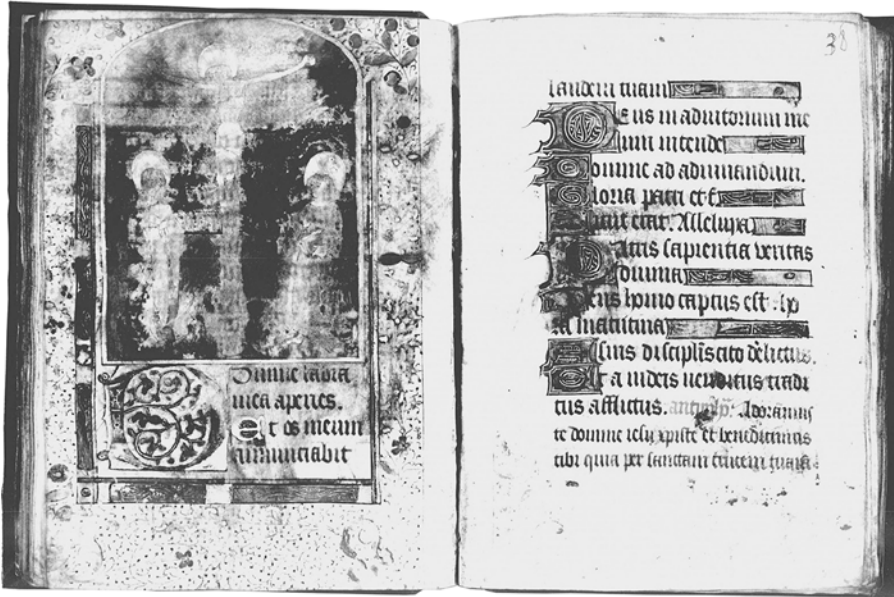 Domine labia
mea aperies.
Et os meum
annunciabit
38
laudem tuam
Deus in adiutorium me
um intende
Domine ad adiuuandum.
Gloria patri et f.
Sicut erat. Alleluya
Patris sapientia veritas
diuina
Deus homo captus est . ho
ra matutina
A suis discipulis cito delictus.
Et a iudeis venditus tradi
tus afflictus. Adoramus
te domine iesu xpiste et benedicimus
tibi quia per sanctam crucem tuam